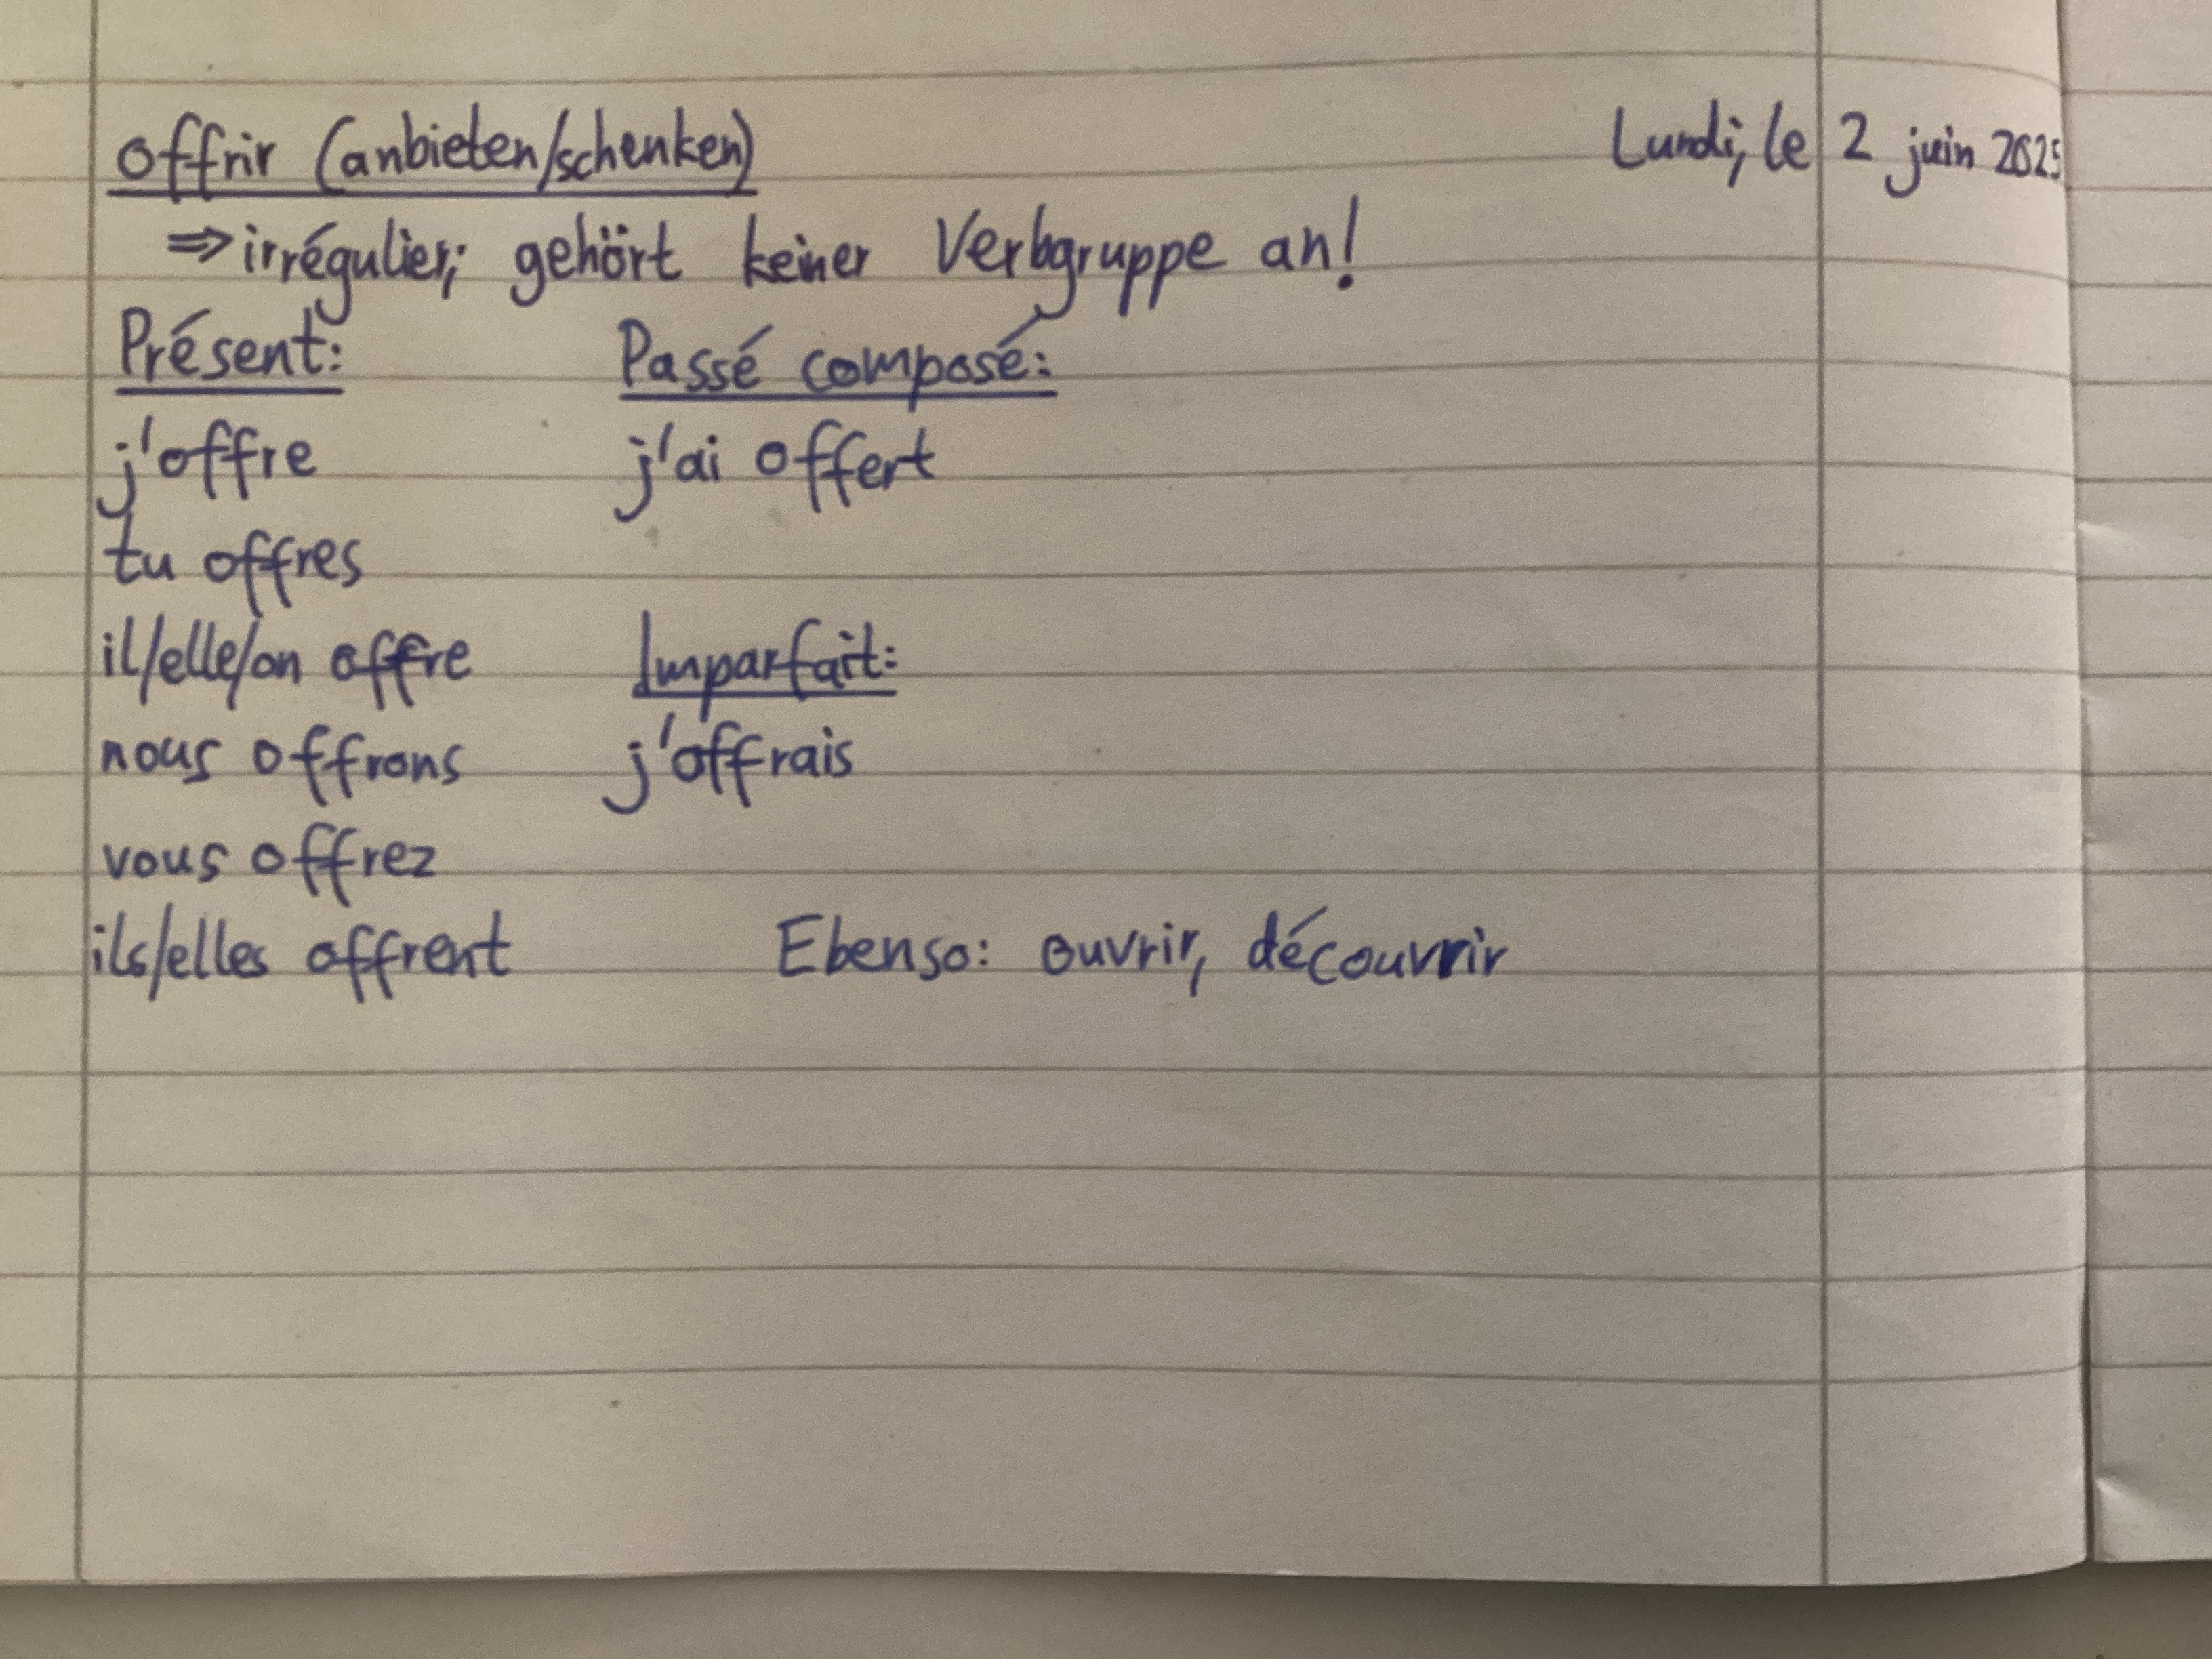 offrir (anbieten/schenken) Lundi, le 2 juin 2025
⇒ irrégulier; gehört keiner Verbgruppe an!
Présent: Passé composé:
j'offre j'ai offert
tu offres
il/elle/on offre Imparfait:
nous offrons j'offrais
vous offrez
ils/elles offrent Ebenso: ouvrir, découvrir